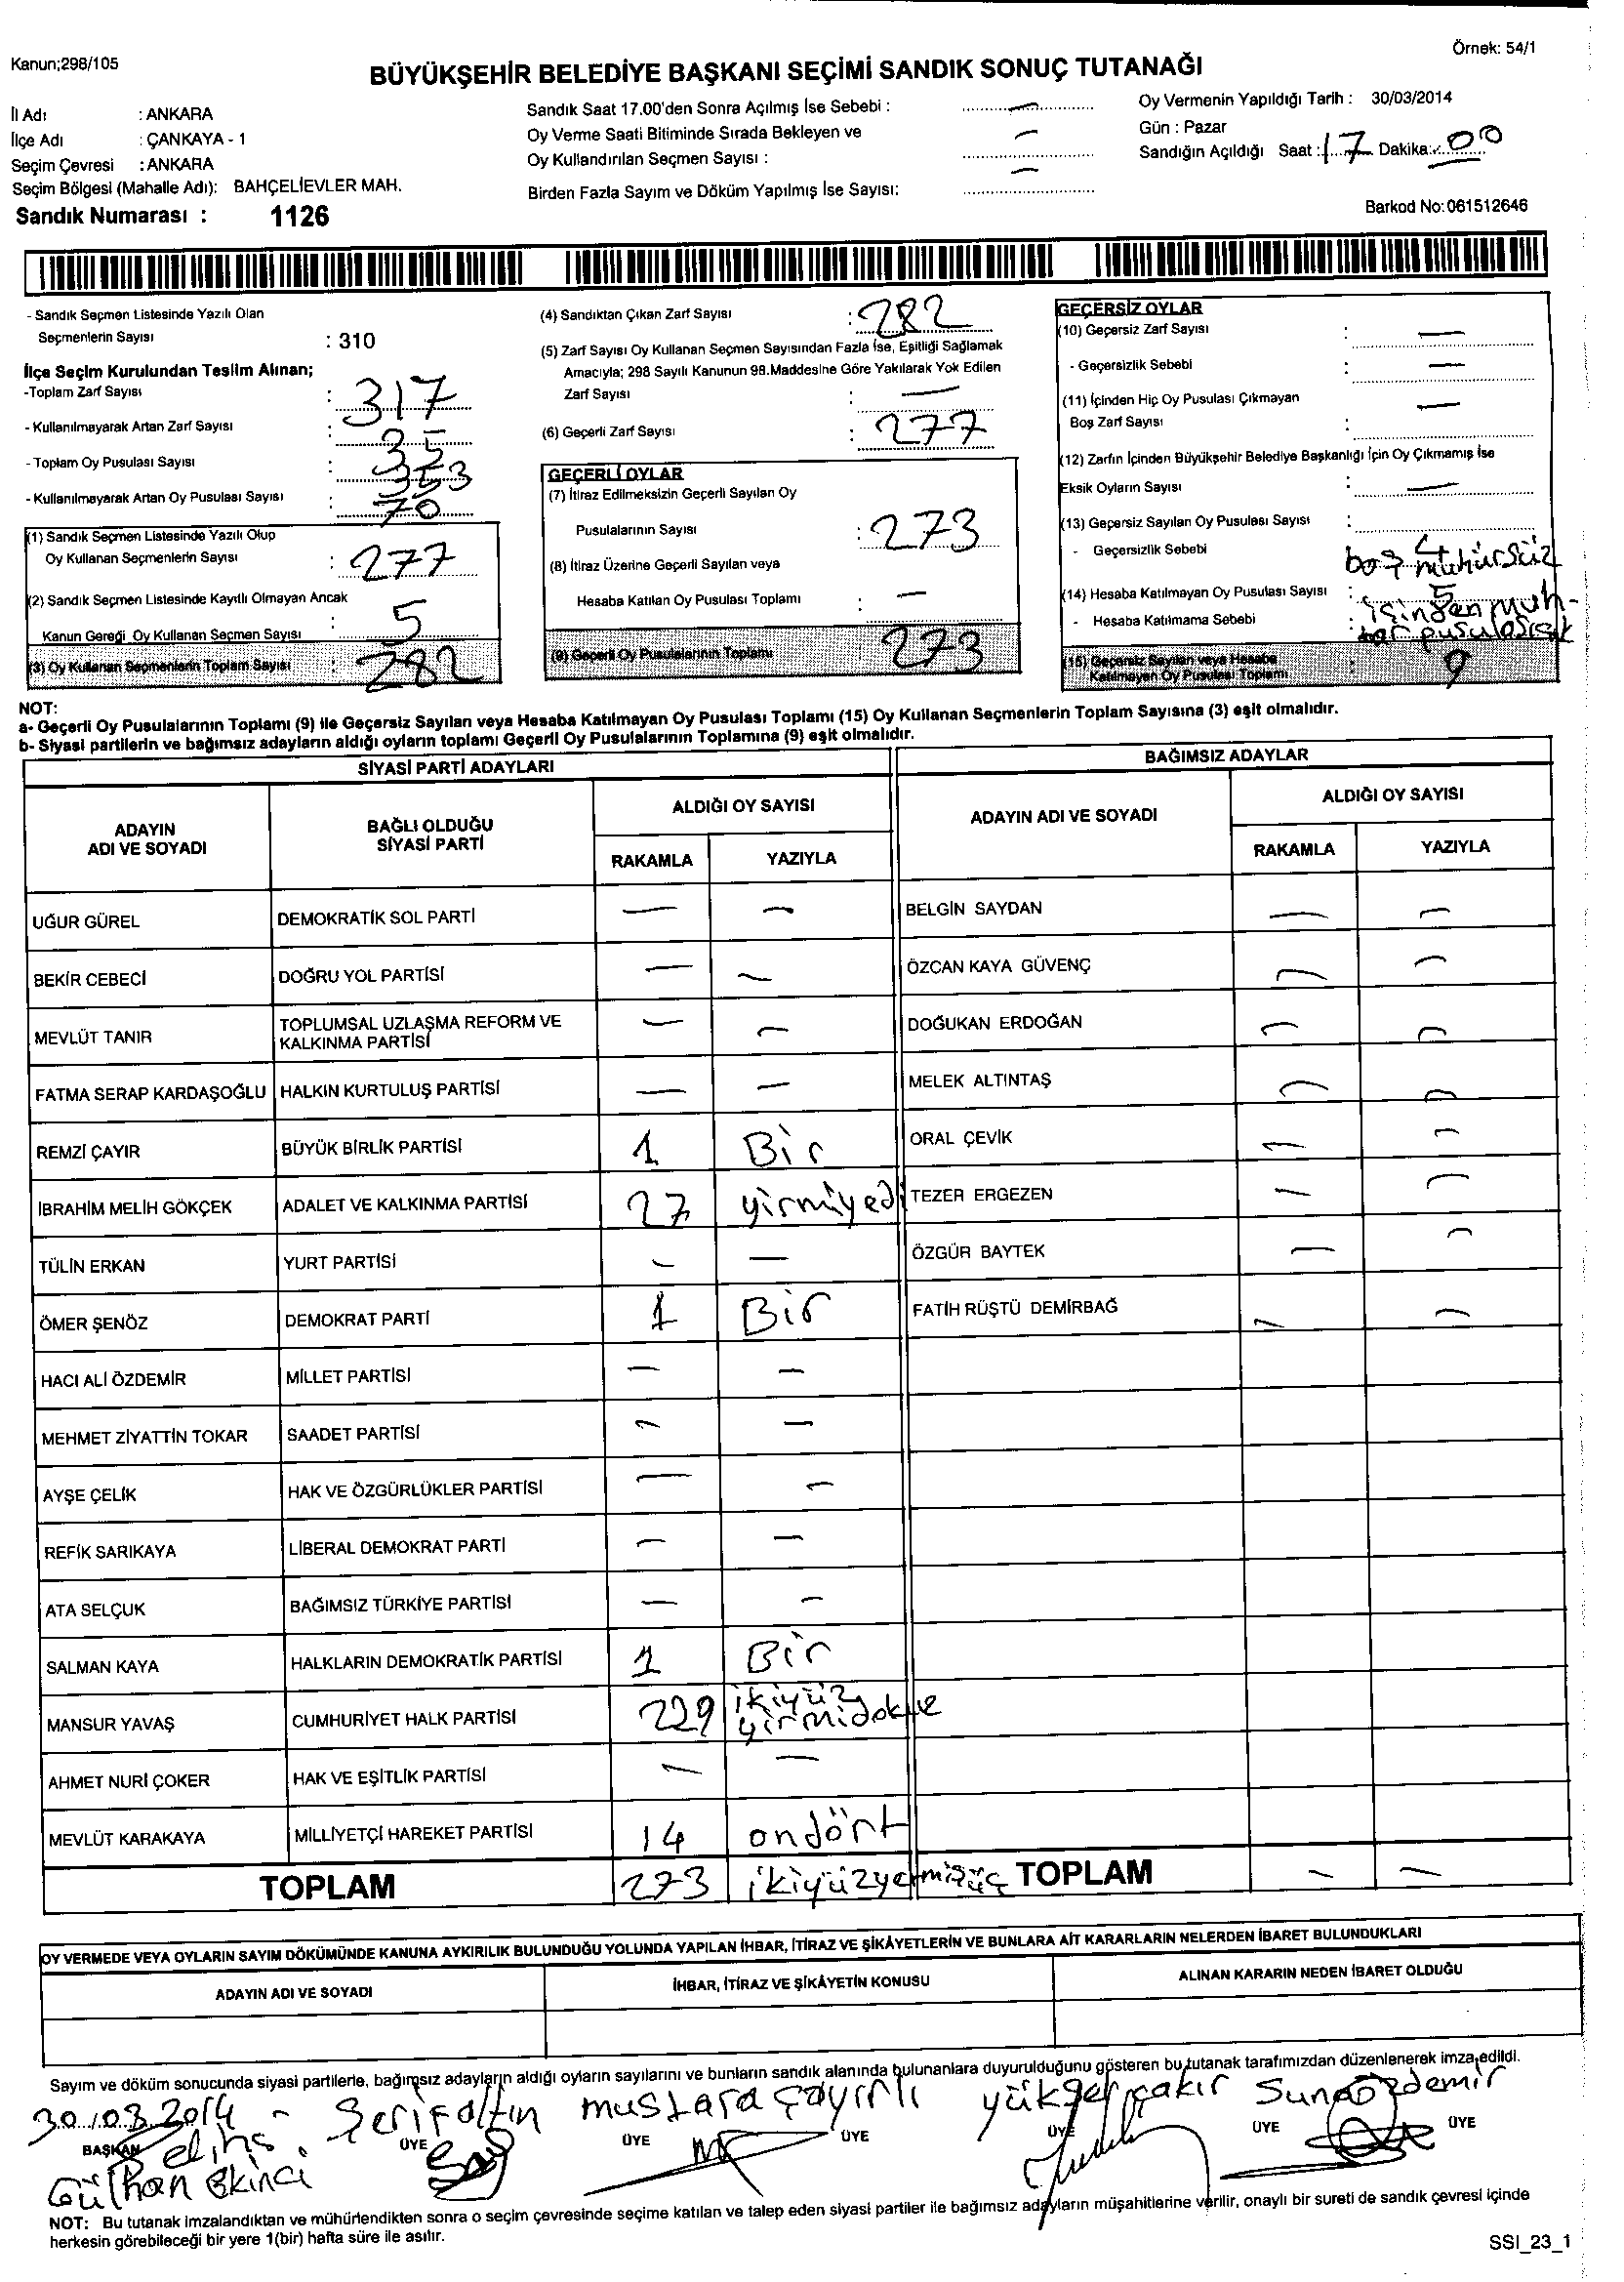 Kanun;298/105
Örnek: 54/1
BÜYÜKŞEHİR BELEDİYE BAŞKANI SEÇİMİ SANDIK SONUÇ TUTANAĞI
İl Adı : ANKARA
İlçe Adı : ÇANKAYA - 1
Seçim Çevresi : ANKARA
Seçim Bölgesi (Mahalle Adı): BAHÇELİEVLER MAH.
Sandık Numarası : 1126
Sandık Saat 17.00'den Sonra Açılmış İse Sebebi : —
Oy Verme Saati Bitiminde Sırada Bekleyen ve
Oy Kullandırılan Seçmen Sayısı : —
Birden Fazla Sayım ve Döküm Yapılmış İse Sayısı: —
Oy Vermenin Yapıldığı Tarih : 30/03/2014
Gün : Pazar
Sandığın Açıldığı Saat : 17 Dakika: 00
Barkod No: 061512646
- Sandık Seçmen Listesinde Yazılı Olan
Seçmenlerin Sayısı : 310
İlçe Seçim Kurulundan Teslim Alınan;
-Toplam Zarf Sayısı : 317
- Kullanılmayarak Artan Zarf Sayısı : 35
- Toplam Oy Pusulası Sayısı : 353
- Kullanılmayarak Artan Oy Pusulası Sayısı : 70
(1) Sandık Seçmen Listesinde Yazılı Olup
Oy Kullanan Seçmenlerin Sayısı : 277
(2) Sandık Seçmen Listesinde Kayıtlı Olmayan Ancak
Kanun Gereği Oy Kullanan Seçmen Sayısı : 5
(3) Oy Kullanan Seçmenlerin Toplam Sayısı : 282
(4) Sandıktan Çıkan Zarf Sayısı : 282
(5) Zarf Sayısı Oy Kullanan Seçmen Sayısından Fazla İse, Eşitliği Sağlamak
Amacıyla; 298 Sayılı Kanunun 98.Maddesine Göre Yakılarak Yok Edilen
Zarf Sayısı : —
(6) Geçerli Zarf Sayısı : 277
GEÇERLİ OYLAR
(7) İtiraz Edilmeksizin Geçerli Sayılan Oy
Pusulalarının Sayısı : 273
(8) İtiraz Üzerine Geçerli Sayılan veya
Hesaba Katılan Oy Pusulası Toplamı : —
(9) Geçerli Oy Pusulalarının Toplamı 273
GEÇERSİZ OYLAR
(10) Geçersiz Zarf Sayısı : —
- Geçersizlik Sebebi : —
(11) İçinden Hiç Oy Pusulası Çıkmayan —
Boş Zarf Sayısı :
(12) Zarfın İçinden Büyükşehir Belediye Başkanlığı İçin Oy Çıkmamış İse
Eksik Oyların Sayısı : —
(13) Geçersiz Sayılan Oy Pusulası Sayısı : 4
- Geçersizlik Sebebi boş mühürsüz
(14) Hesaba Katılmayan Oy Pusulası Sayısı : 5
- Hesaba Katılmama Sebebi : içinden muh-
tar pusulası çık
(15) Geçersiz Sayılan veya Hesaba
Katılmayan Oy Pusulası Toplamı : 9
NOT:
a- Geçerli Oy Pusulalarının Toplamı (9) ile Geçersiz Sayılan veya Hesaba Katılmayan Oy Pusulası Toplamı (15) Oy Kullanan Seçmenlerin Toplam Sayısına (3) eşit olmalıdır.
b- Siyasi partilerin ve bağımsız adayların aldığı oyların toplamı Geçerli Oy Pusulalarının Toplamına (9) eşit olmalıdır.
SİYASİ PARTİ ADAYLARI
BAĞIMSIZ ADAYLAR
ADAYIN
ADI VE SOYADI
BAĞLI OLDUĞU
SİYASİ PARTİ
ALDIĞI OY SAYISI
RAKAMLA YAZIYLA
ADAYIN ADI VE SOYADI
ALDIĞI OY SAYISI
RAKAMLA YAZIYLA
UĞUR GÜREL DEMOKRATİK SOL PARTİ — — BELGİN SAYDAN — —
BEKİR CEBECİ DOĞRU YOL PARTİSİ — — ÖZCAN KAYA GÜVENÇ — —
MEVLÜT TANIR TOPLUMSAL UZLAŞMA REFORM VE
KALKINMA PARTİSİ — — DOĞUKAN ERDOĞAN — —
FATMA SERAP KARDAŞOĞLU HALKIN KURTULUŞ PARTİSİ — — MELEK ALTINTAŞ — —
REMZİ ÇAYIR BÜYÜK BİRLİK PARTİSİ 1 Bir ORAL ÇEVİK — —
İBRAHİM MELİH GÖKÇEK ADALET VE KALKINMA PARTİSİ 27 yirmiyedi TEZER ERGEZEN — —
TÜLİN ERKAN YURT PARTİSİ — — ÖZGÜR BAYTEK — —
ÖMER ŞENÖZ DEMOKRAT PARTİ 1 Bir FATİH RÜŞTÜ DEMİRBAĞ — —
HACI ALİ ÖZDEMİR MİLLET PARTİSİ — —
MEHMET ZİYATTİN TOKAR SAADET PARTİSİ — —
AYŞE ÇELİK HAK VE ÖZGÜRLÜKLER PARTİSİ — —
REFİK SARIKAYA LİBERAL DEMOKRAT PARTİ — —
ATA SELÇUK BAĞIMSIZ TÜRKİYE PARTİSİ — —
SALMAN KAYA HALKLARIN DEMOKRATİK PARTİSİ 1 Bir
MANSUR YAVAŞ CUMHURİYET HALK PARTİSİ 229 ikiyüz
yirmidokuz
AHMET NURİ ÇOKER HAK VE EŞİTLİK PARTİSİ — —
MEVLÜT KARAKAYA MİLLİYETÇİ HAREKET PARTİSİ 14 ondört
TOPLAM 273 ikiyüzyetmişüç TOPLAM — —
OY VERMEDE VEYA OYLARIN SAYIM DÖKÜMÜNDE KANUNA AYKIRILIK BULUNDUĞU YOLUNDA YAPILAN İHBAR, İTİRAZ VE ŞİKÂYETLERİN VE BUNLARA AİT KARARLARIN NELERDEN İBARET BULUNDUKLARI
ADAYIN ADI VE SOYADI İHBAR, İTİRAZ VE ŞİKÂYETİN KONUSU ALINAN KARARIN NEDEN İBARET OLDUĞU
Sayım ve döküm sonucunda siyasi partilerle, bağımsız adayların aldığı oyların sayılarını ve bunların sandık alanında bulunanlara duyurulduğunu gösteren bu tutanak tarafımızdan düzenlenerek imza edildi.
30.03.2014 - Şerif altın mustafa çayırlı yüksel çakır Suna özdemir
BAŞKAN ÜYE ÜYE ÜYE ÜYE ÜYE ÜYE
Gülhan Ekinci
NOT: Bu tutanak imzalandıktan ve mühürlendikten sonra o seçim çevresinde seçime katılan ve talep eden siyasi partiler ile bağımsız adayların müşahitlerine verilir, onaylı bir sureti de sandık çevresi içinde
herkesin görebileceği bir yere 1(bir) hafta süre ile asılır.
SSI_23_1